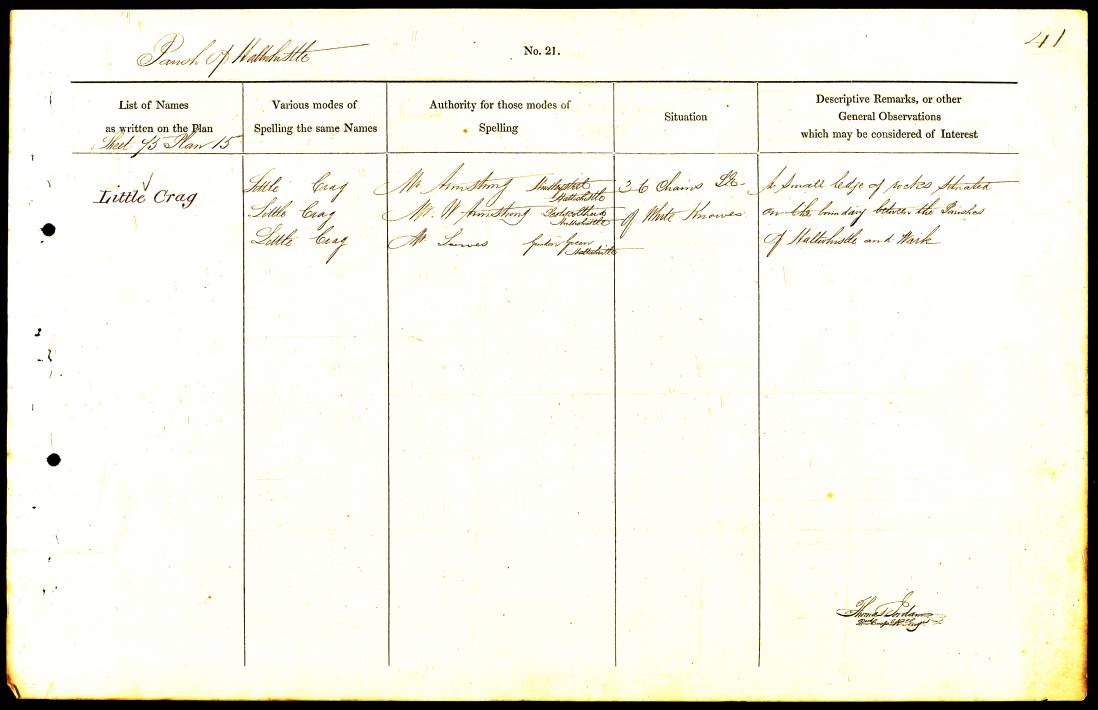 41
Parish of Haltwhistle
No. 21.
List of Names
as written on the Plan
Various modes of
Spelling the same Names
Authority for those modes of
Spelling
Situation
Descriptive Remarks, or other
General Observations
which may be considered of Interest
Sheet 75 Plan 15
Little Crag
Little Crag
Little Crag
Little Crag
Mr. Armstrong
Haltwhistle
Mr. W Armstrong
Haltwhistle
Mr.
Green
Haltwhistle
36 Chains
of White Knowes
A small ledge of rocks situated
on the boundary between the Parishes
of Haltwhistle and Wark
Thomas Jordan